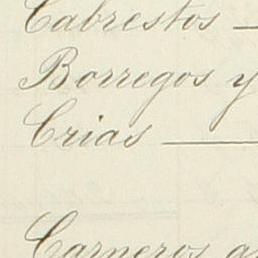 Cabrestos —
Borregos y
Crias —
Carneros